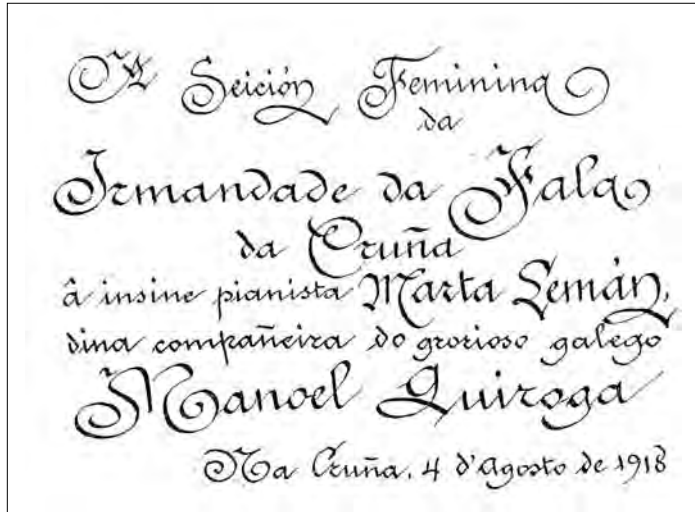 A Seición Feminina
da
Irmandade da Fala
da Cruña
â insine pianista Marta Lemán,
dina compañeira do grorioso galego
Manoel Quiroga
Na Cruña, 4 d'Agosto de 1918